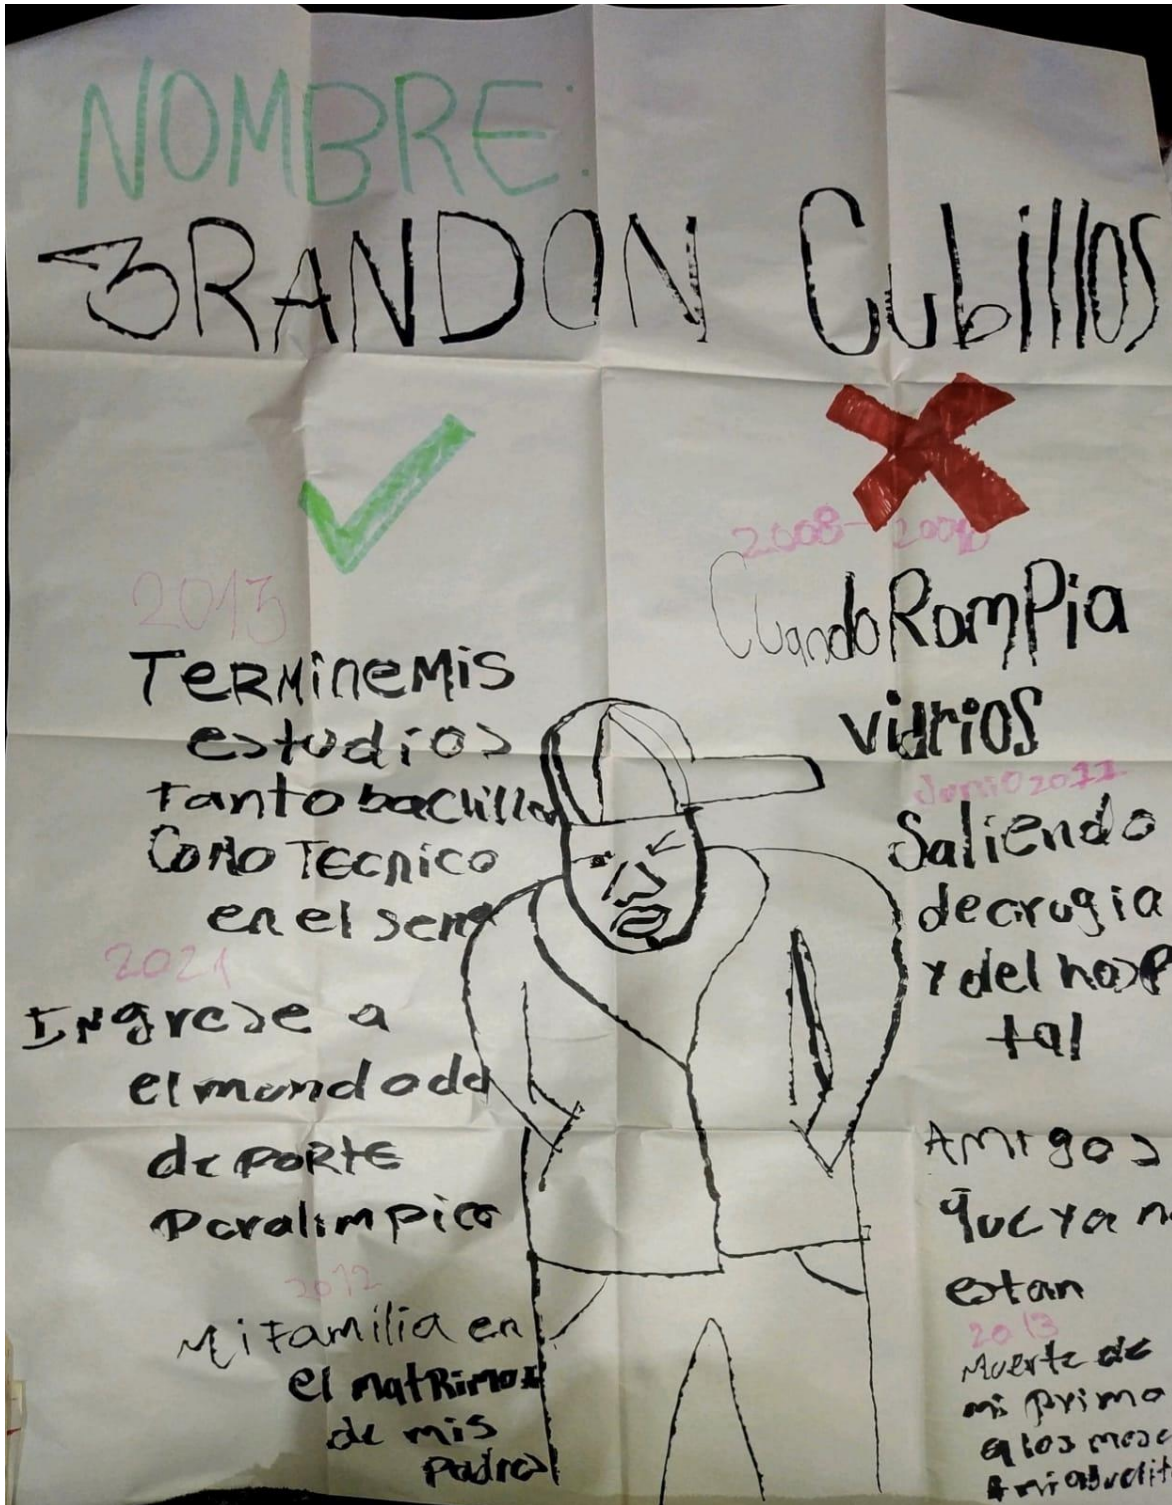 NOMBRE:
BRANDON Cubillos
2013
TERMinemis
estudios
Tanto bachiller
Como Tecnico
en el sena
2021
INgrese a
el mundo de
dePORtE
Paralimpico
2012
Mi Familia en
el matRimo
de mis
Padres
2008-
Cuando RomPia
vidrios
Junio 2011
Saliendo
decrugia
y del hosp
tal
AMigos
que ya n
estan
2013
Muerte de
mi primo
a los mese
mi abuelit